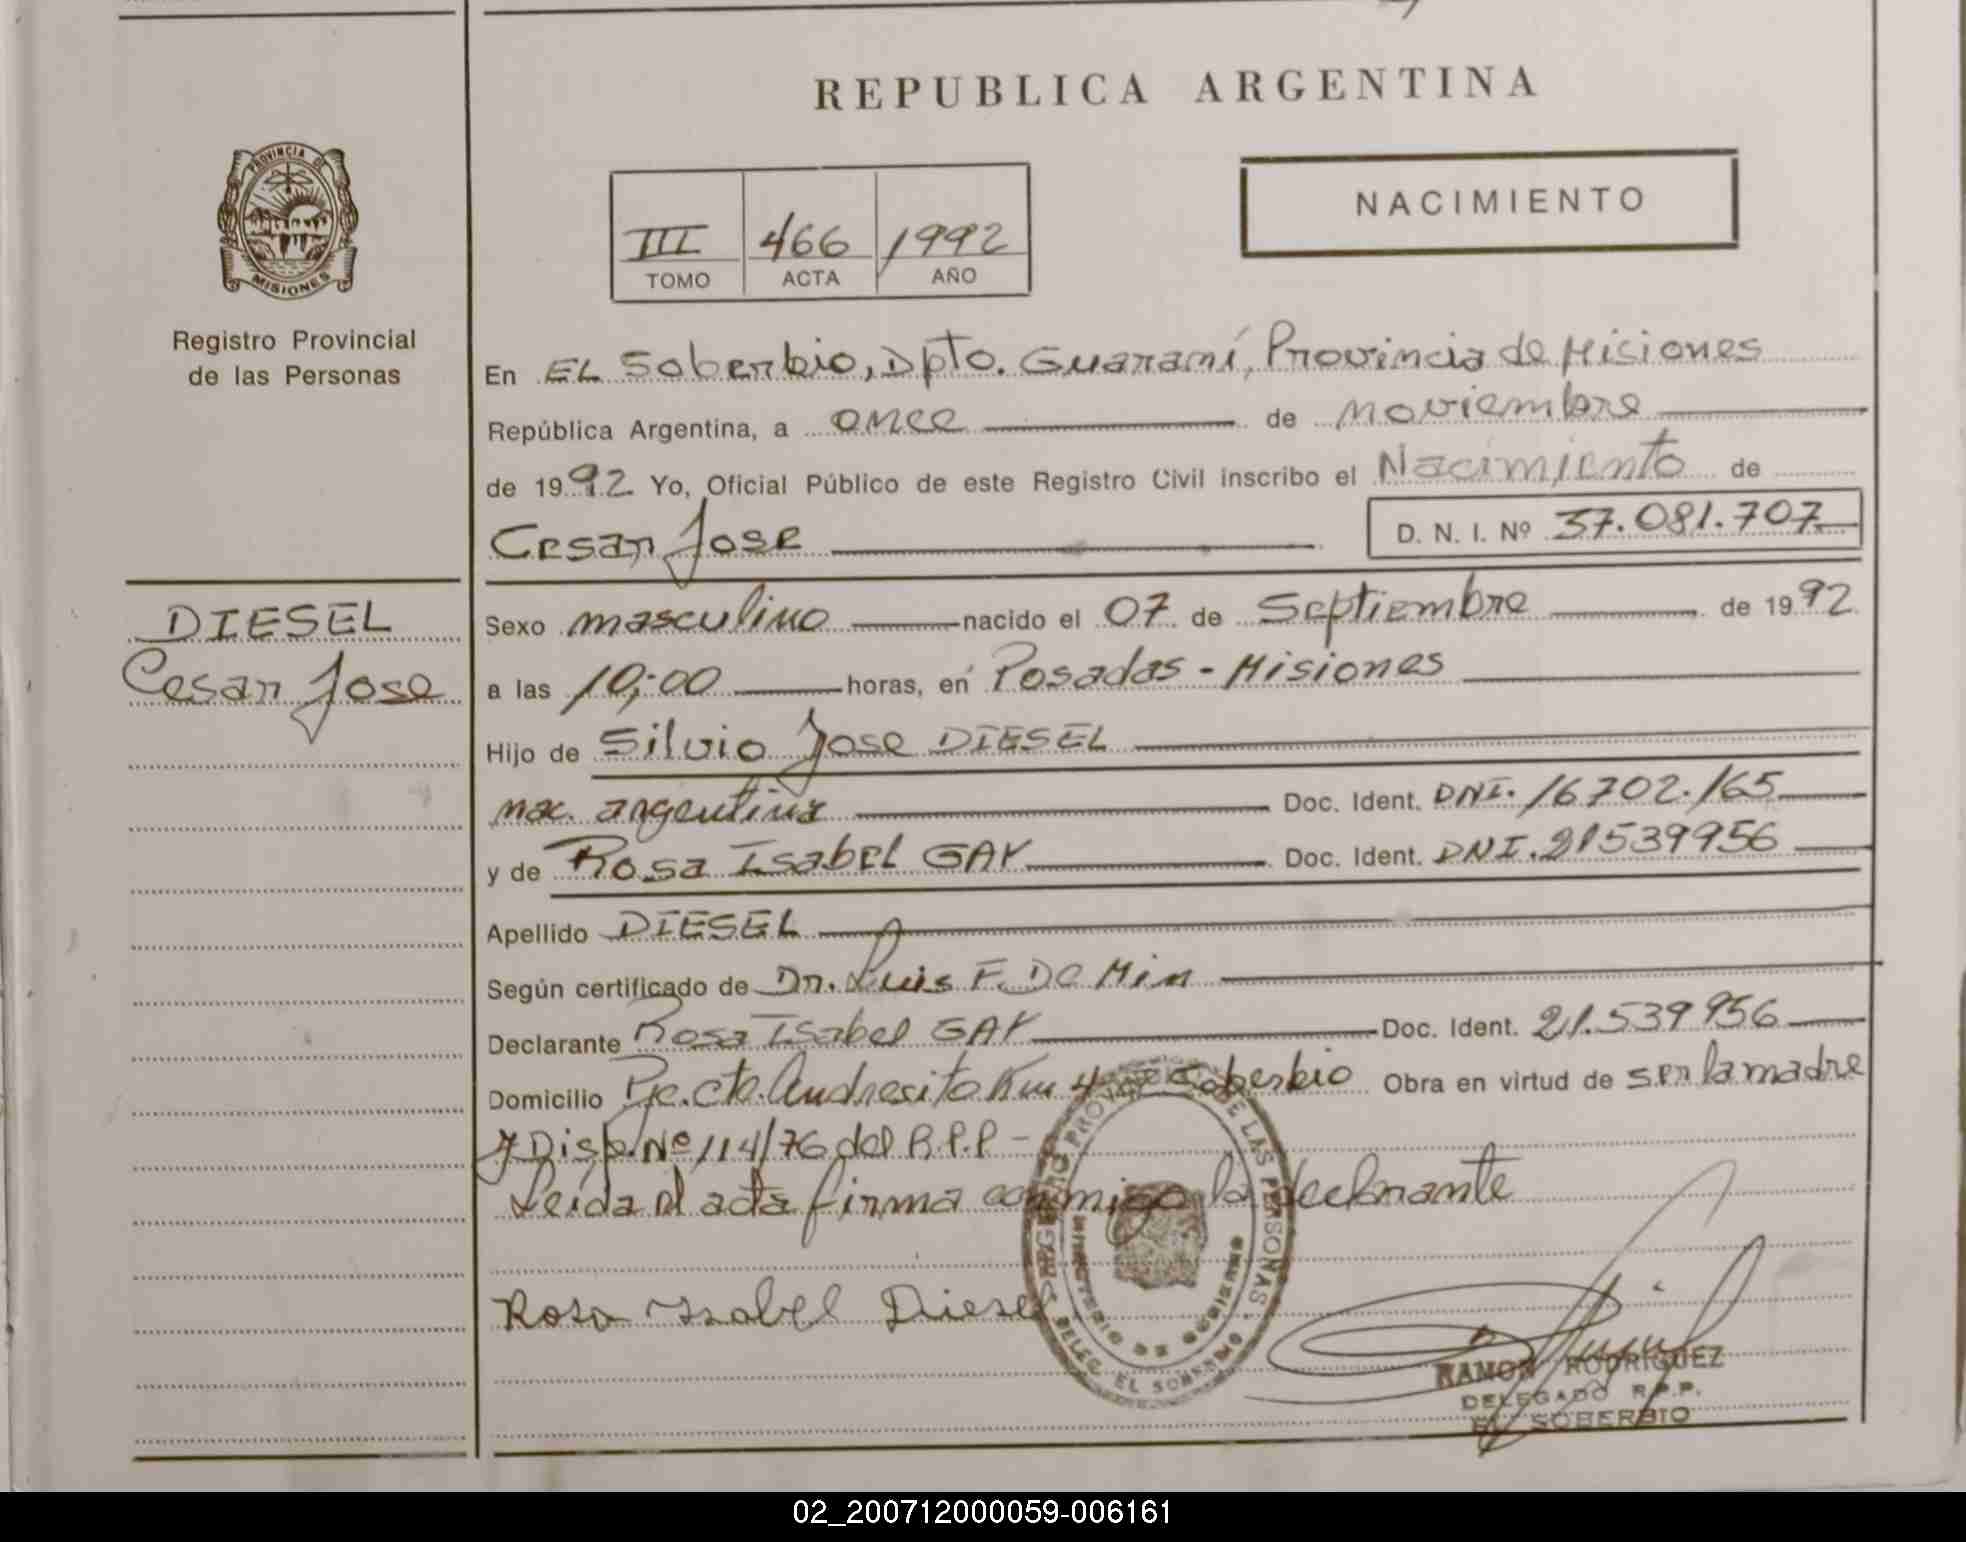 REPUBLICA ARGENTINA
PROVINCIA DE
MISIONES
Registro Provincial
de las Personas
III 466 1992
TOMO ACTA AÑO
NACIMIENTO
En EL Soberbio, Dpto. Guaraní, Provincia de Misiones
República Argentina, a once de noviembre
de 1992 Yo, Oficial Público de este Registro Civil inscribo el Nacimiento de
Cesar Jose D. N. I. Nº 37.081.707
DIESEL
Cesar Jose
Sexo masculino nacido el 07 de Septiembre de 1992
a las 10:00 horas, en Posadas - Misiones
Hijo de Silvio Jose DIESEL
nac. argentina Doc. Ident. DNI. 16702.165
y de Rosa Isabel GAY Doc. Ident. DNI. 21539956
Apellido DIESEL
Según certificado de Dr. Luis F. De Min
Declarante Rosa Isabel GAY Doc. Ident. 21.539956
Domicilio Pje. cto. Andresito Km 4 Soberbio Obra en virtud de ser la madre
y Disp. Nº 114/76 del R.P.P -
Leída el acta firma conmigo la declarante
Rosa Isabel Diesel
REGISTRO PROVINCIAL DE LAS PERSONAS
MINISTERIO DE GOBIERNO
DELEG. EL SOBERBIO
RAMON RODRIGUEZ
DELEGADO R.P.P.
EL SOBERBIO
02_200712000059-006161